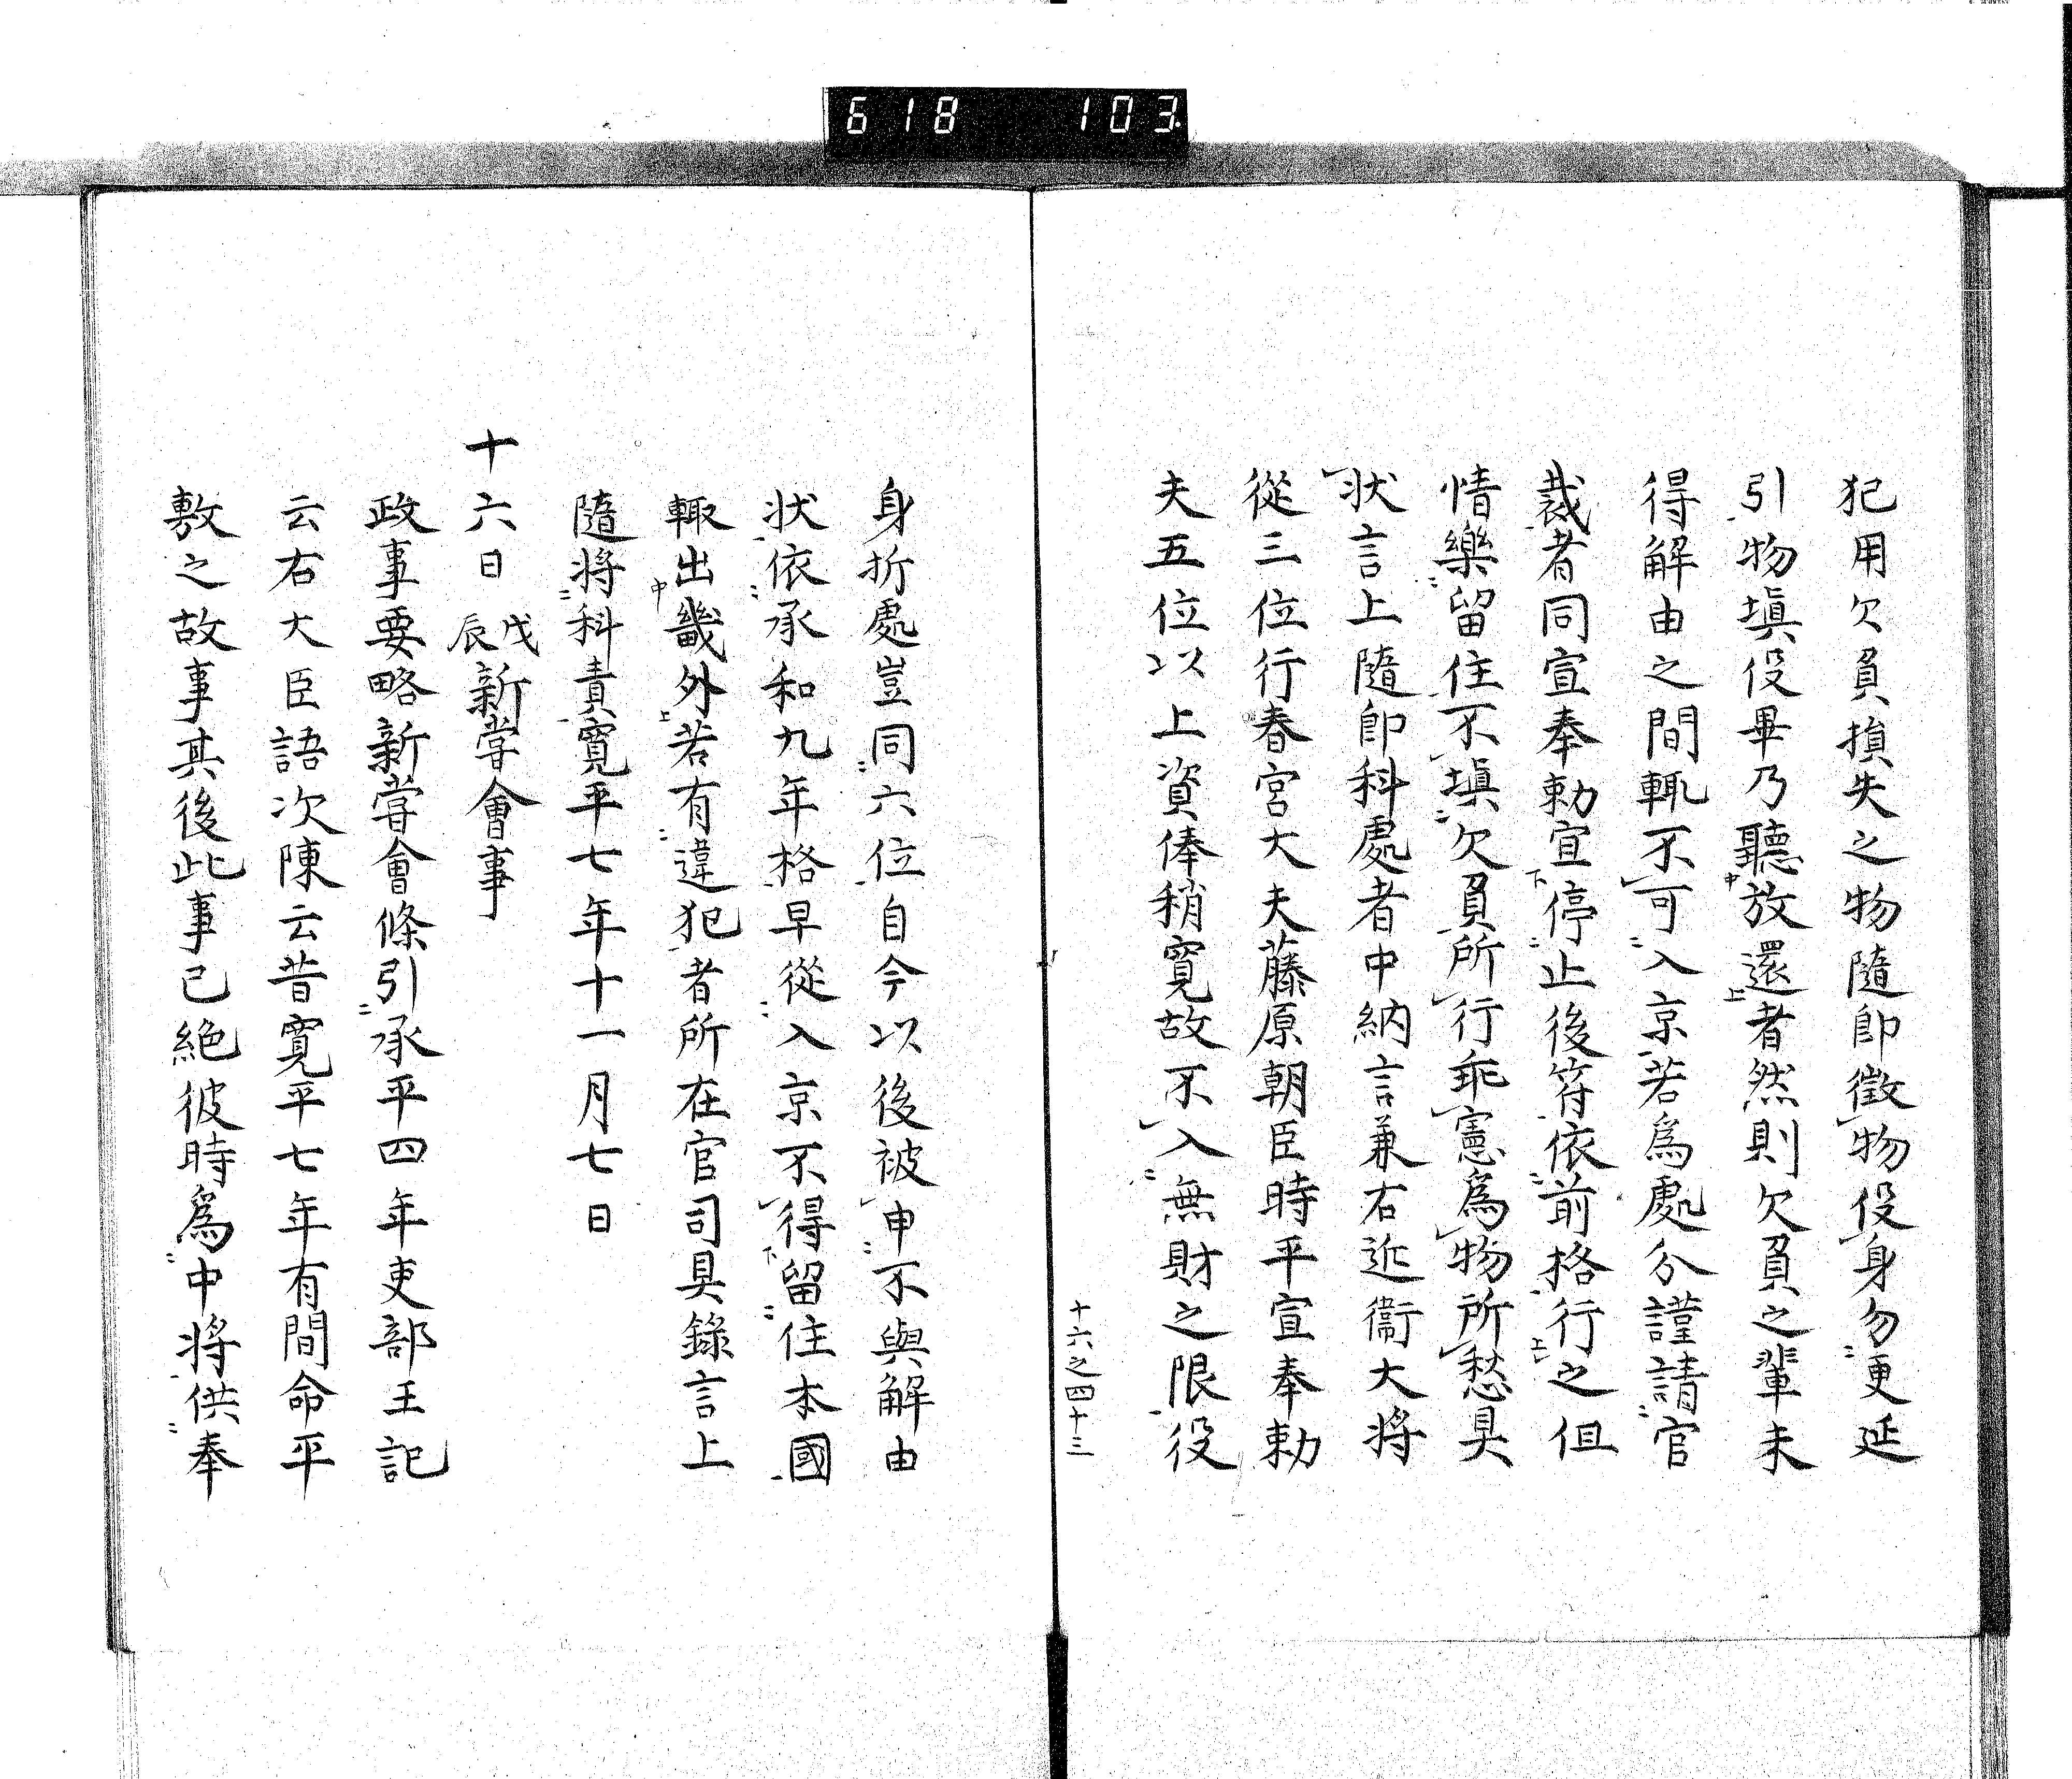 618 103
犯用欠負損失之物隨即徵物役身勿更延
引物塡役畢乃聽放還者然則欠負之輩未
得解由之間輙不可入京若爲處分謹請官
裁者同宣奉勅宜停止後符依前格行之但
情樂留住不塡欠負所行乖憲爲物所愁具
状言上隨即科處者中納言兼右近衞大將
從三位行春宮大夫藤原朝臣時平宣奉勅
夫五位以上資俸稍寬故不入無財之限役
十六之四十三
身折處豈同六位自今以後被申不與解由
状依承和九年格早從入京不得留住本國
輙出畿外若有違犯者所在官司具錄言上
隨將科責寬平七年十一月七日
十六日戊辰新嘗會事
政事要略新嘗會條引承平四年吏部王記
云右大臣語次陳云昔寬平七年有間命平
敷之故事其後此事已絕彼時爲中將供奉